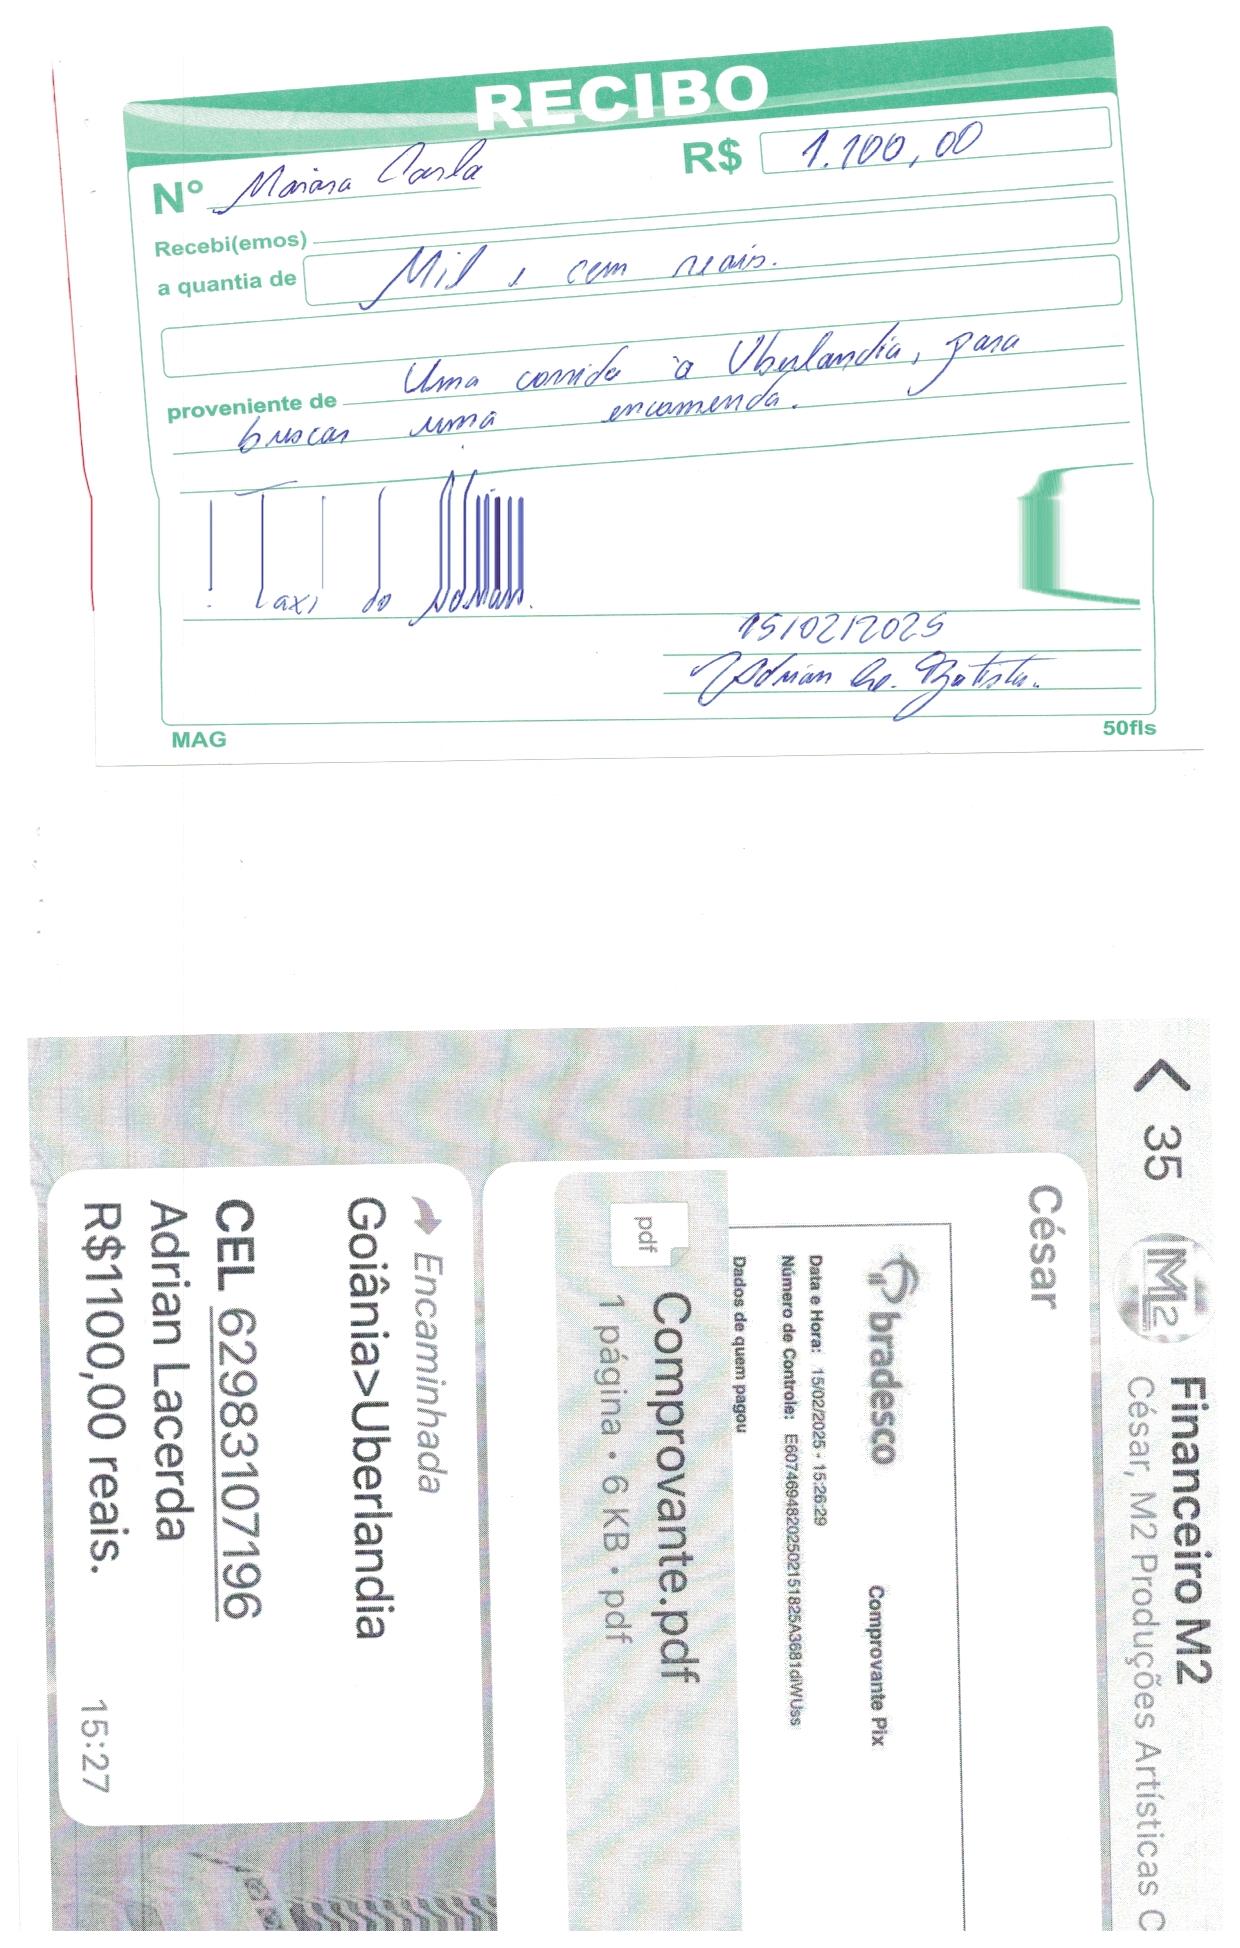 RECIBO
Nº Maiara Carla R$ 1.100,00
Recebi(emos)
a quantia de Mil e cem reais.
proveniente de Uma corrida à Uberlandia, para
buscar uma encomenda.
Taxi do
15/02/2025
Adrian Batista.
MAG 50fls
< 35 M2 Financeiro M2
César, M2 Produções Artísticas C
César
bradesco Comprovante Pix
Data e Hora: 15/02/2025 - 15:26:29
Número de Controle: E60746948202502151825A3681diWUss
Dados de quem pagou
pdf Comprovante.pdf
1 página • 6 KB • pdf
Encaminhada
Goiânia>Uberlandia
CEL 62983107196
Adrian Lacerda
R$1100,00 reais.
15:27